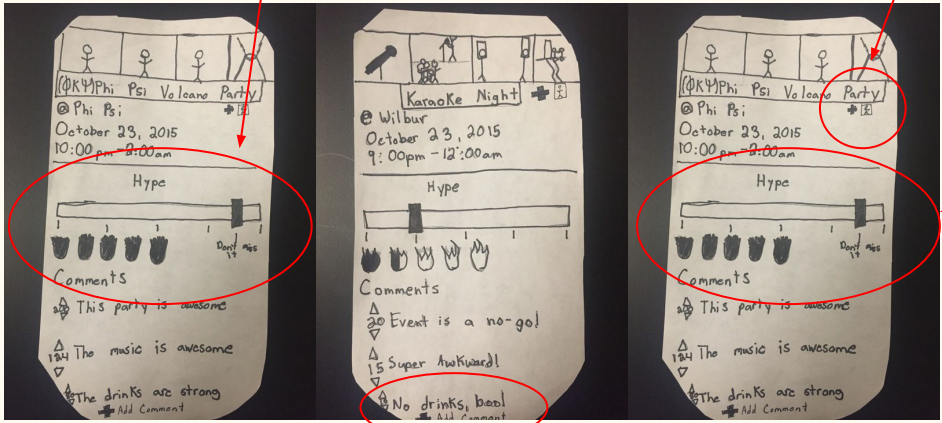 (ΦΚΨ) Phi Psi Volcano Party
@ Phi Psi
October 23, 2015
10:00pm-2:00am
Hype
Don't miss it
Comments
This party is awesome
124 The music is awesome
The drinks are strong
Add Comment
Karaoke Night
@ Wilbur
October 23, 2015
9:00pm-12:00am
Hype
Comments
20 Event is a no-go!
15 Super Awkward!
No drinks, boo!
Add Comment
(ΦΚΨ) Phi Psi Volcano Party
@ Phi Psi
October 23, 2015
10:00pm-2:00am
Hype
Don't miss it
Comments
This party is awesome
124 The music is awesome
The drinks are strong
Add Comment